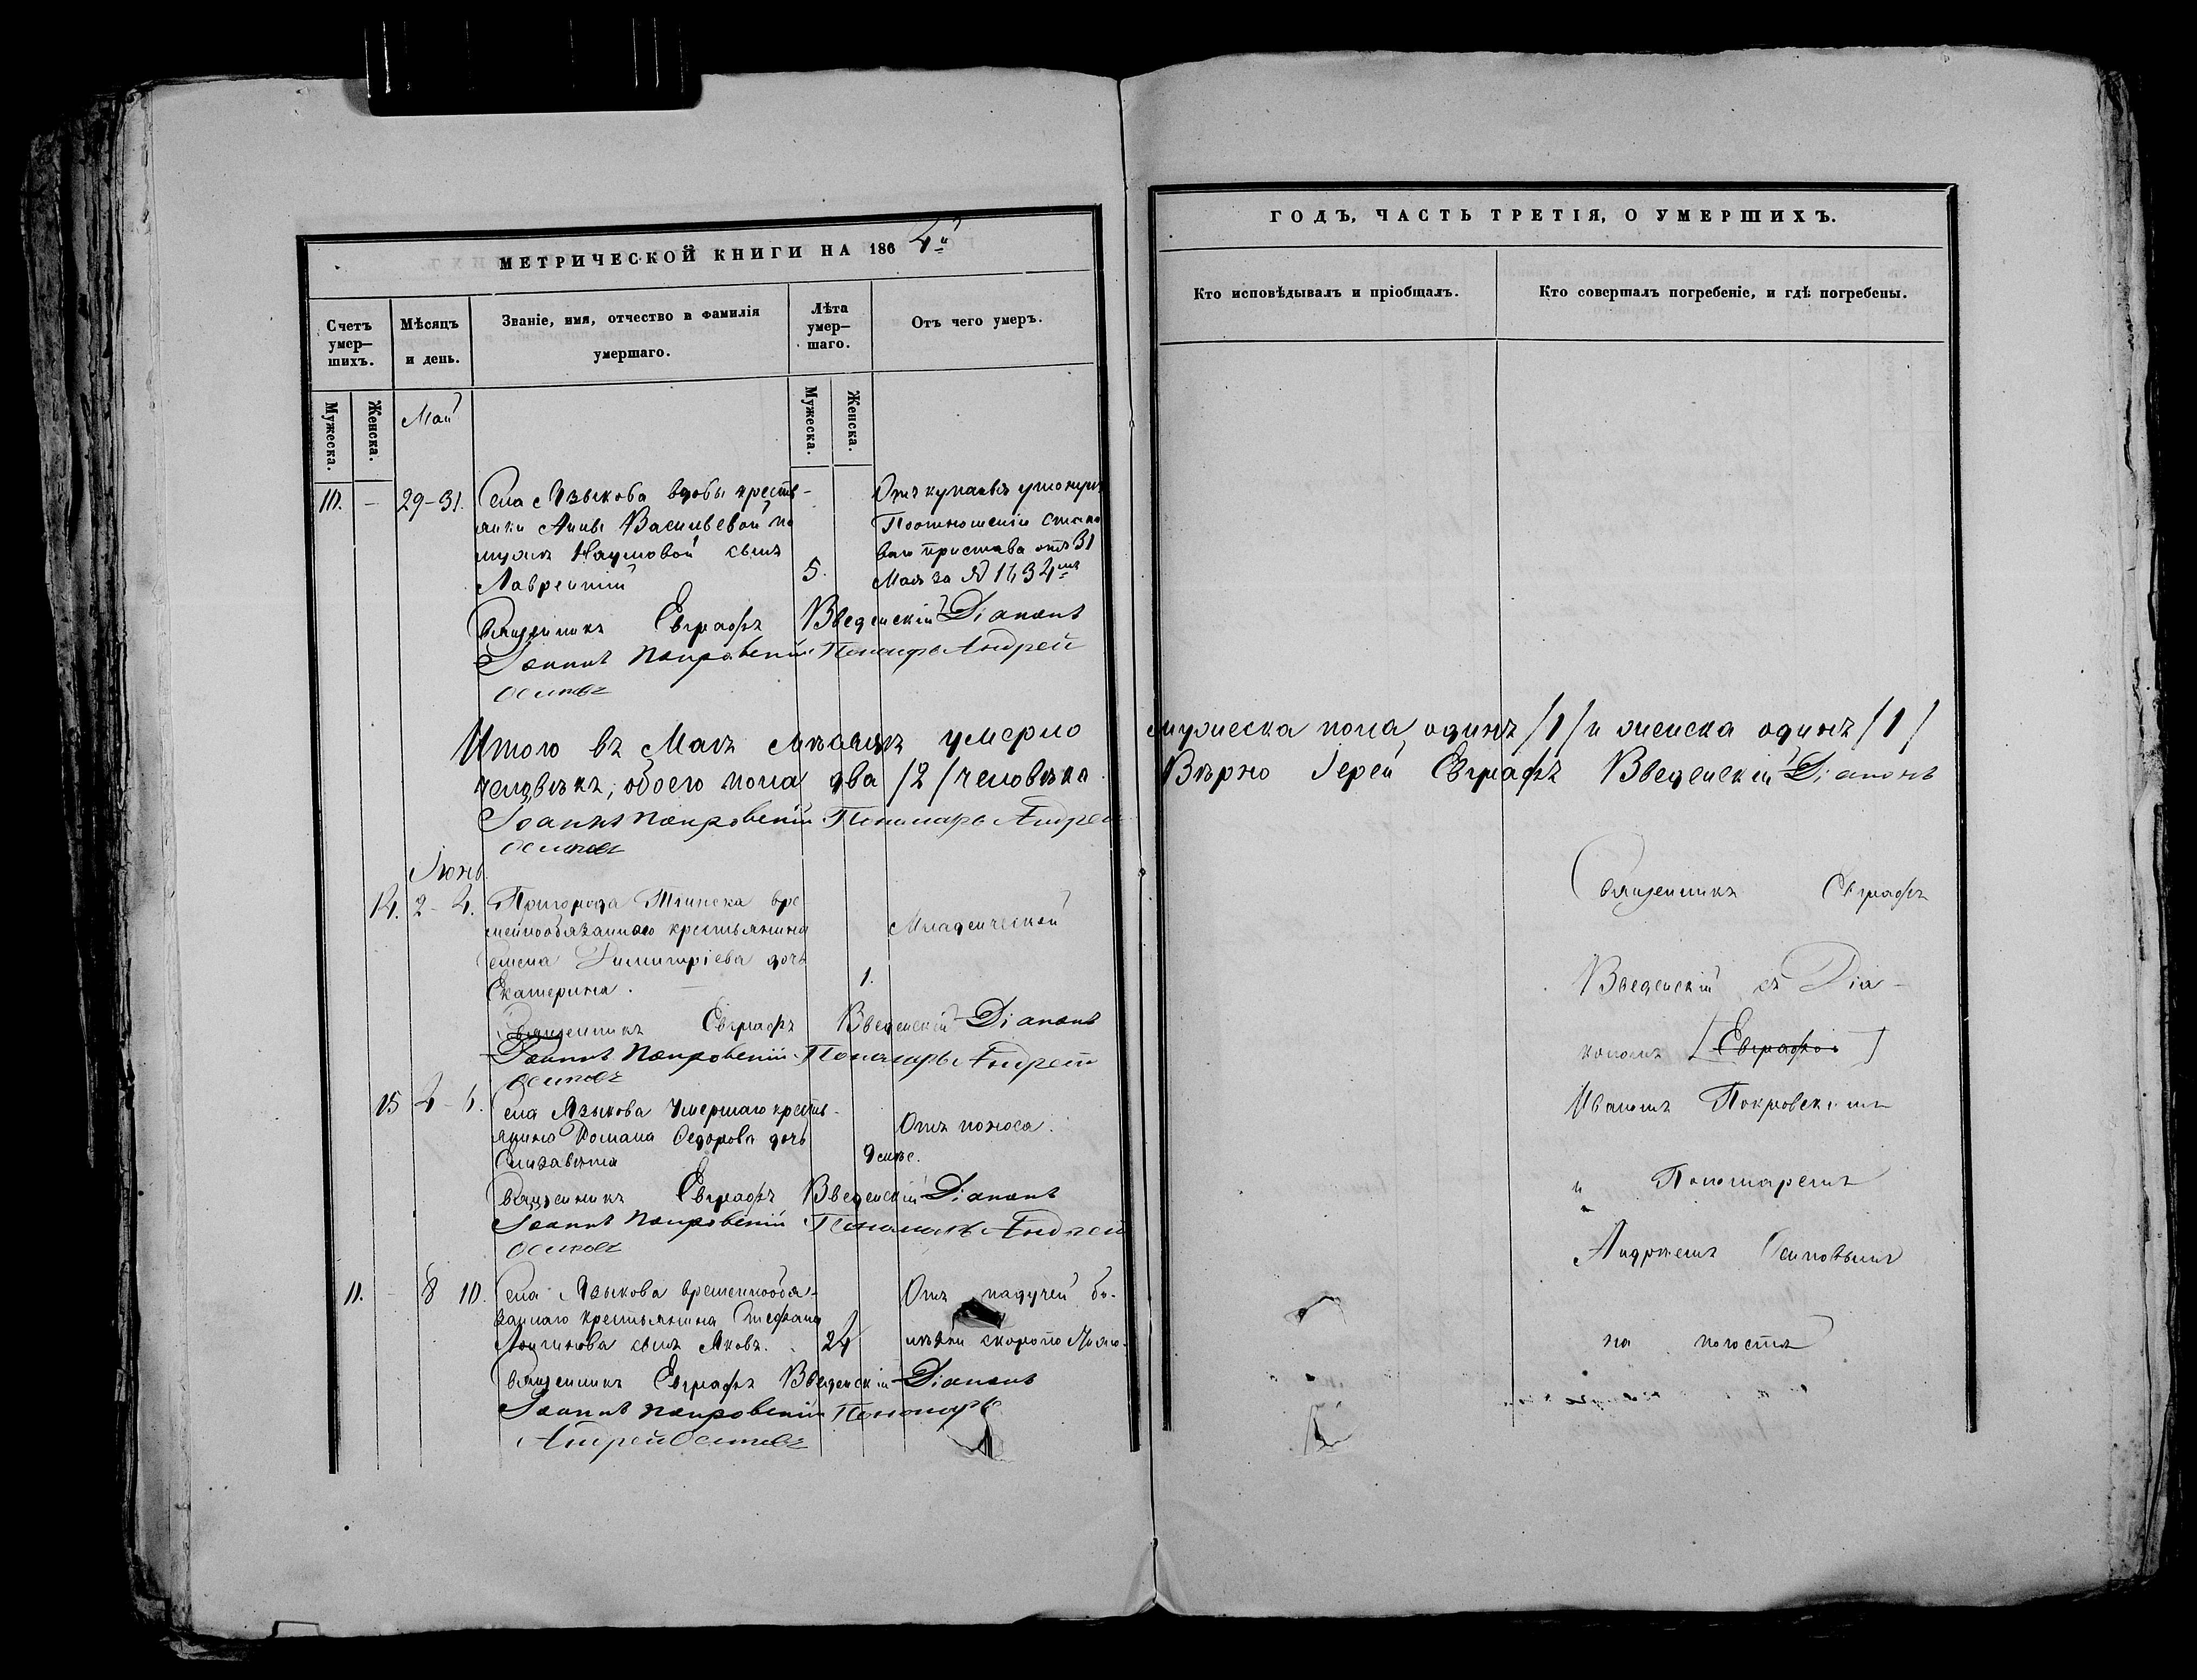 МЕТРИЧЕСКОЙ КНИГИ НА 1864й
Счетъ умер-шихъ.
Мѣсяцъ и день.
Званіе, имя, отчество и фамилія умершаго.
Лѣта умер-шаго.
Отъ чего умеръ.
Мужеска.
Женска.
Май
Мужеска.
Женска.
10. — 29-31.
Села Языкова вдовы кресть-
янки Анны Васильевой по
мужѣ Наумовой сынъ
Лаврентій
5.
утонулъ
По отношенію стано
ваго пристава отъ 31
Мая за № 1634мъ
Священникъ Евграфъ Введенскій Діаконъ
Іоаннъ Покровскій Пономарь Андрей
Осиповъ
Итого въ Маѣ мѣсяцѣ умерло
человѣкъ, обоего пола два /2/ человѣка
Іоаннъ Покровскій Пономарь Андрей
Осиповъ
Іюнь
14. 2-4.
Пригорода Тіинска вре
меннообязаннаго крестьянина
Димитріева дочь
Екатерина.
1.
Младенческой
Священникъ Евграфъ Введенскій Діаконъ
Іоаннъ Покровскій Пономарь Андрей
Осиповъ
15 4-6.
Села Языкова умершаго кресть-
янина Романа Ѳедорова дочь
Елизавета
Отъ поноса.
Священникъ Евграфъ Введенскій Діаконъ
Іоаннъ Покровскій Пономарь Андрей
Осиповъ
11. - 8 10.
Села Языкова временнообя-
заннаго крестьянина Стефана
Логинова сынъ Яковъ.
24
Отъ падучей бо-
лѣзни
Священникъ Евграфъ Введенскій Діаконъ
Іоаннъ Покровскій Пономарь
Андрей Осиповъ
ГОДЪ, ЧАСТЬ ТРЕТІЯ, О УМЕРШИХЪ.
Кто исповѣдывалъ и пріобщалъ.
Кто совершалъ погребеніе, и гдѣ погребены.
мужеска пола одинъ /1/ и женска одинъ /1/
Вѣрно Іерей Евграфъ Введенскій Діаконъ
Священникъ Евграфъ
Введенскій съ Діа-
кономъ [Евграфо]
Иваномъ Покровскимъ
и Пономаремъ
Андреемъ Осиповымъ
на погостѣ